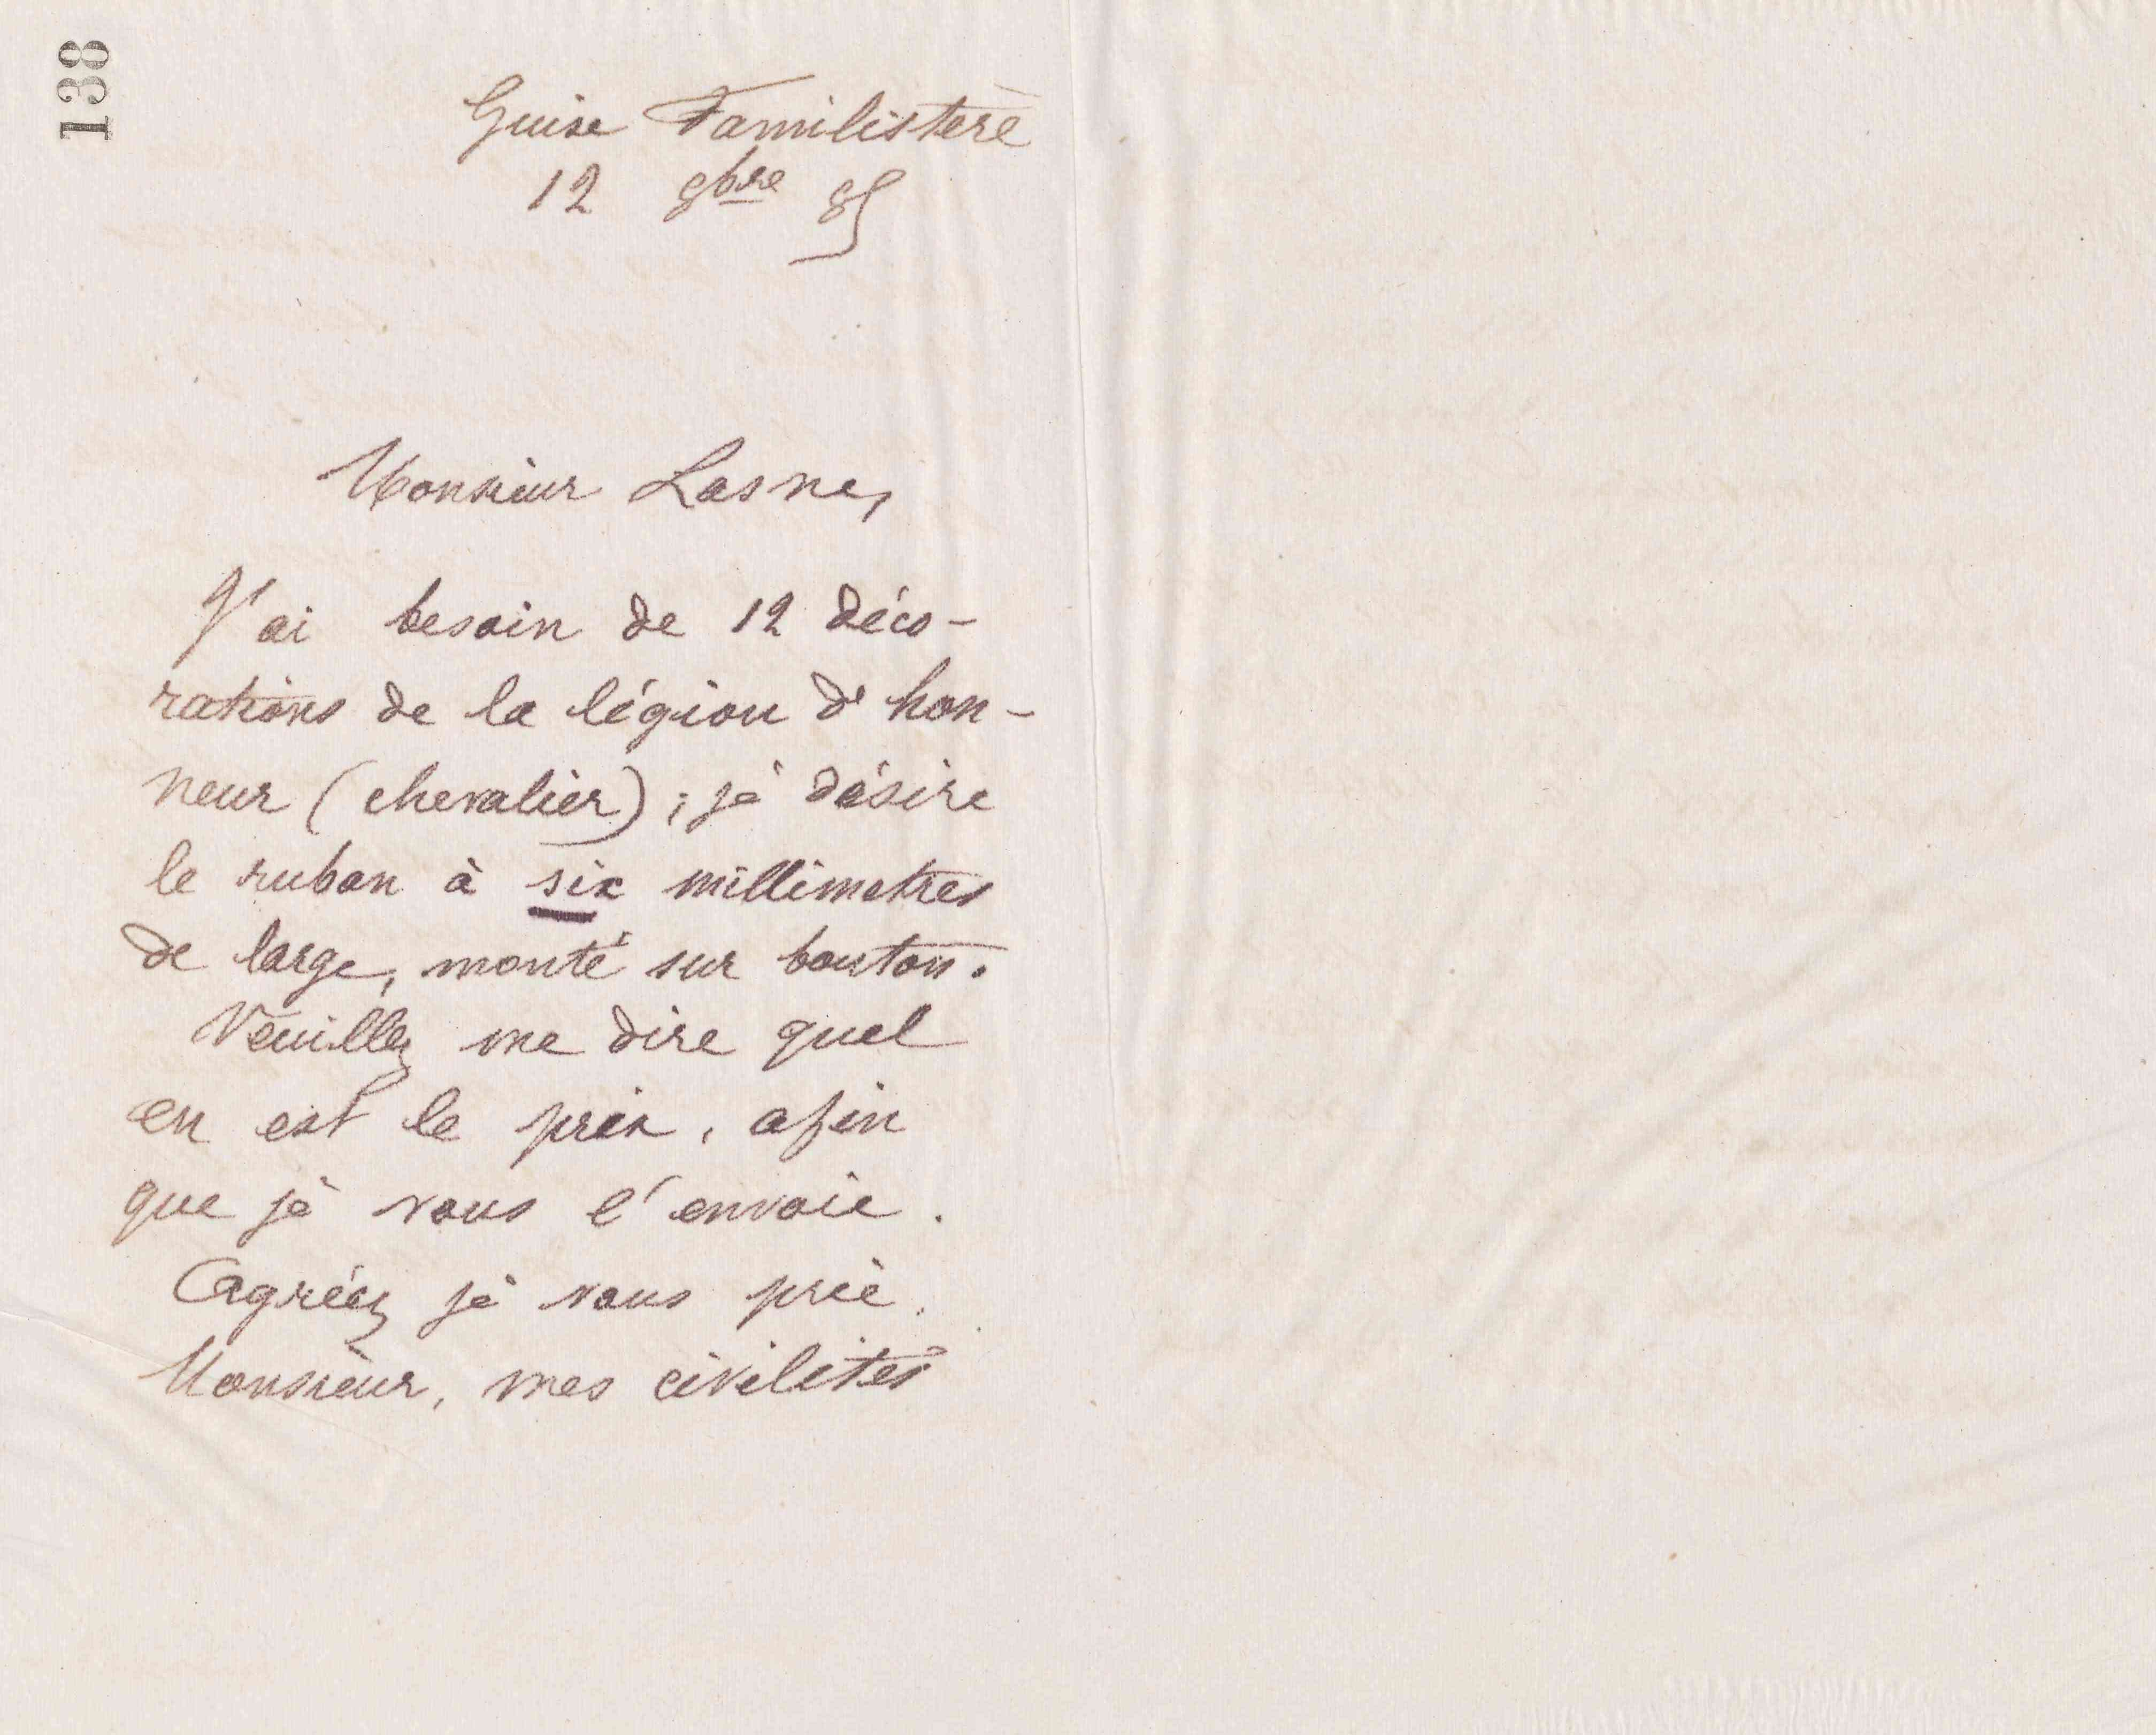 138
Guise Familistère
12 8bre 85
Monsieur Lasne,
J'ai besoin de 12 déco-
rations de la légion d'hon-
neur (chevalier); je désire
le ruban à six millimètres
de large, monté sur bouton.
Veuillez me dire quel
en est le prix, afin
que je vous l'envoie.
Agréez je vous prie,
Monsieur, mes civilités